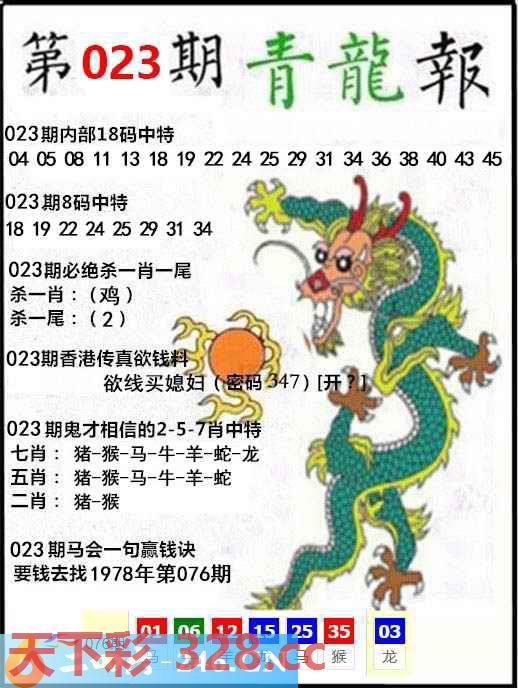 第023期青龍報
023期内部18码中特
04 05 08 11 13 18 19 22 24 25 29 31 34 36 38 40 43 45
023期8码中特
18 19 22 24 25 29 31 34
023期必绝杀一肖一尾
杀一肖：（鸡）
杀一尾：（2）
023期香港传真欲钱料
欲线买媳妇（密码347）[开？]
023期鬼才相信的2-5-7肖中特
七肖：猪-猴-马-牛-羊-蛇-龙
五肖：猪-猴-马-牛-羊-蛇
二肖：猪-猴
023期马会一句赢钱诀
要钱去找1978年第076期
01 06 12 15 25 35 03
猴 龙
天下彩-328.cc